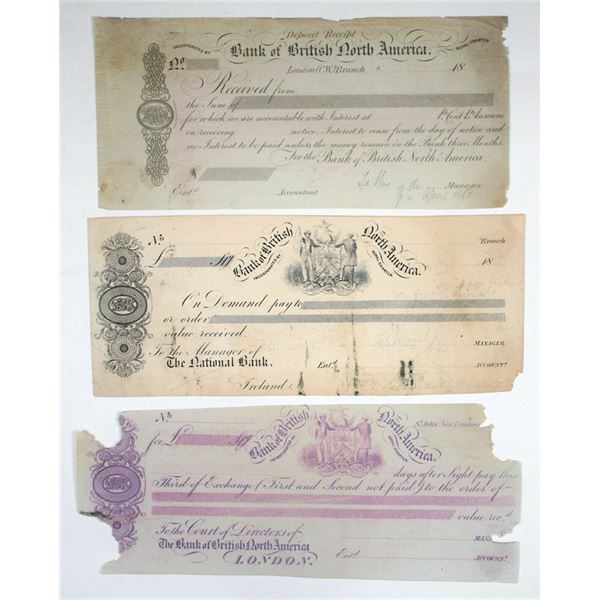 Deposit Receipt
INCORPORATED BY Bank of British North America. ROYAL CHARTER
No
London (C.W.) Branch 18
Received from
the Sum of
for which we are accountable with Interest at P. Cent P. Annum
on receiving notice, Interest to cease from the day of notice and
no Interest to be paid unless the money remain in the Bank three Months.
For the Bank of British North America.
$
Entd. Accountant Manager
April
No
Bank of British North America.
INCORPORATED BY ROYAL CHARTER
Branch
£ Stg 18
On Demand pay to
or order
value received.
MANAGER
To the Manager of
The National Bank. Entd. ACCOUNTt.
Ireland.
No
Bank of British North America.
INCORPORATED BY ROYAL CHARTER
St. John New Brunswick
for £ Stg
days after Sight pay this
Third of Exchange (First and Second not paid) to the order of
value recd.
To the Court of Directors of MANA
The Bank of British North America
LONDON. Entd. ACCOUNTt.